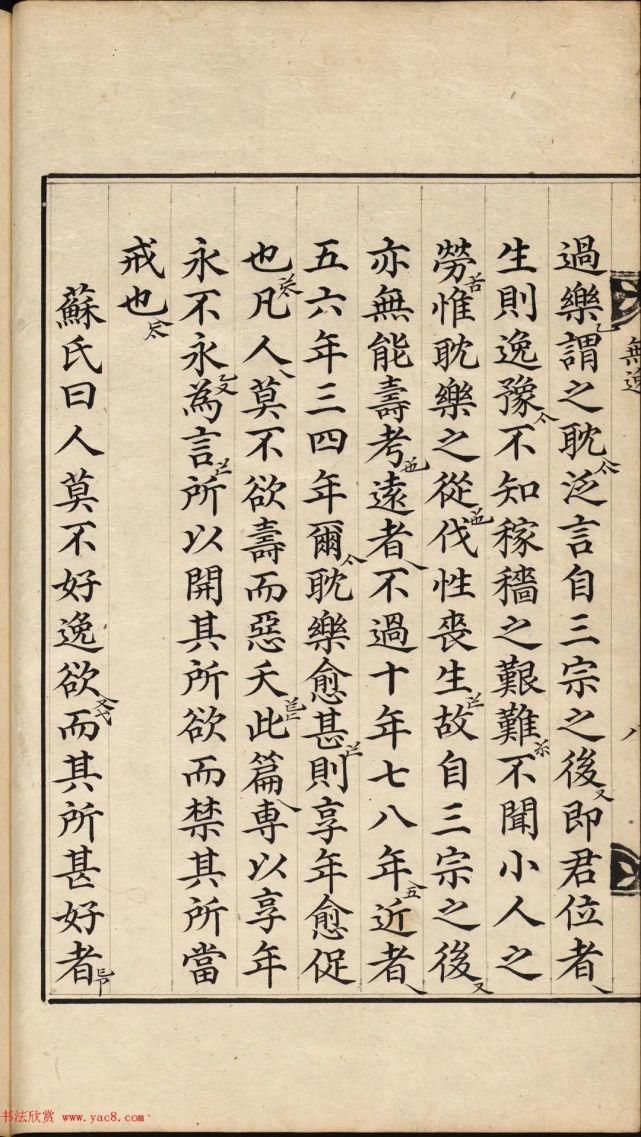 無逸
八
過樂謂之耽泛言自三宗之後即君位者
生則逸豫不知稼穡之艱難不聞小人之
勞惟耽樂之從伐性喪生故自三宗之後
亦無能壽考遠者不過十年七八年近者
五六年三四年爾耽樂愈甚則享年愈促
也凡人莫不欲壽而惡夭此篇専以享年
永不永為言所以開其所欲而禁其所當
戒也
蘇氏曰人莫不好逸欲而其所甚好者
书法欣赏 www.yac8.com